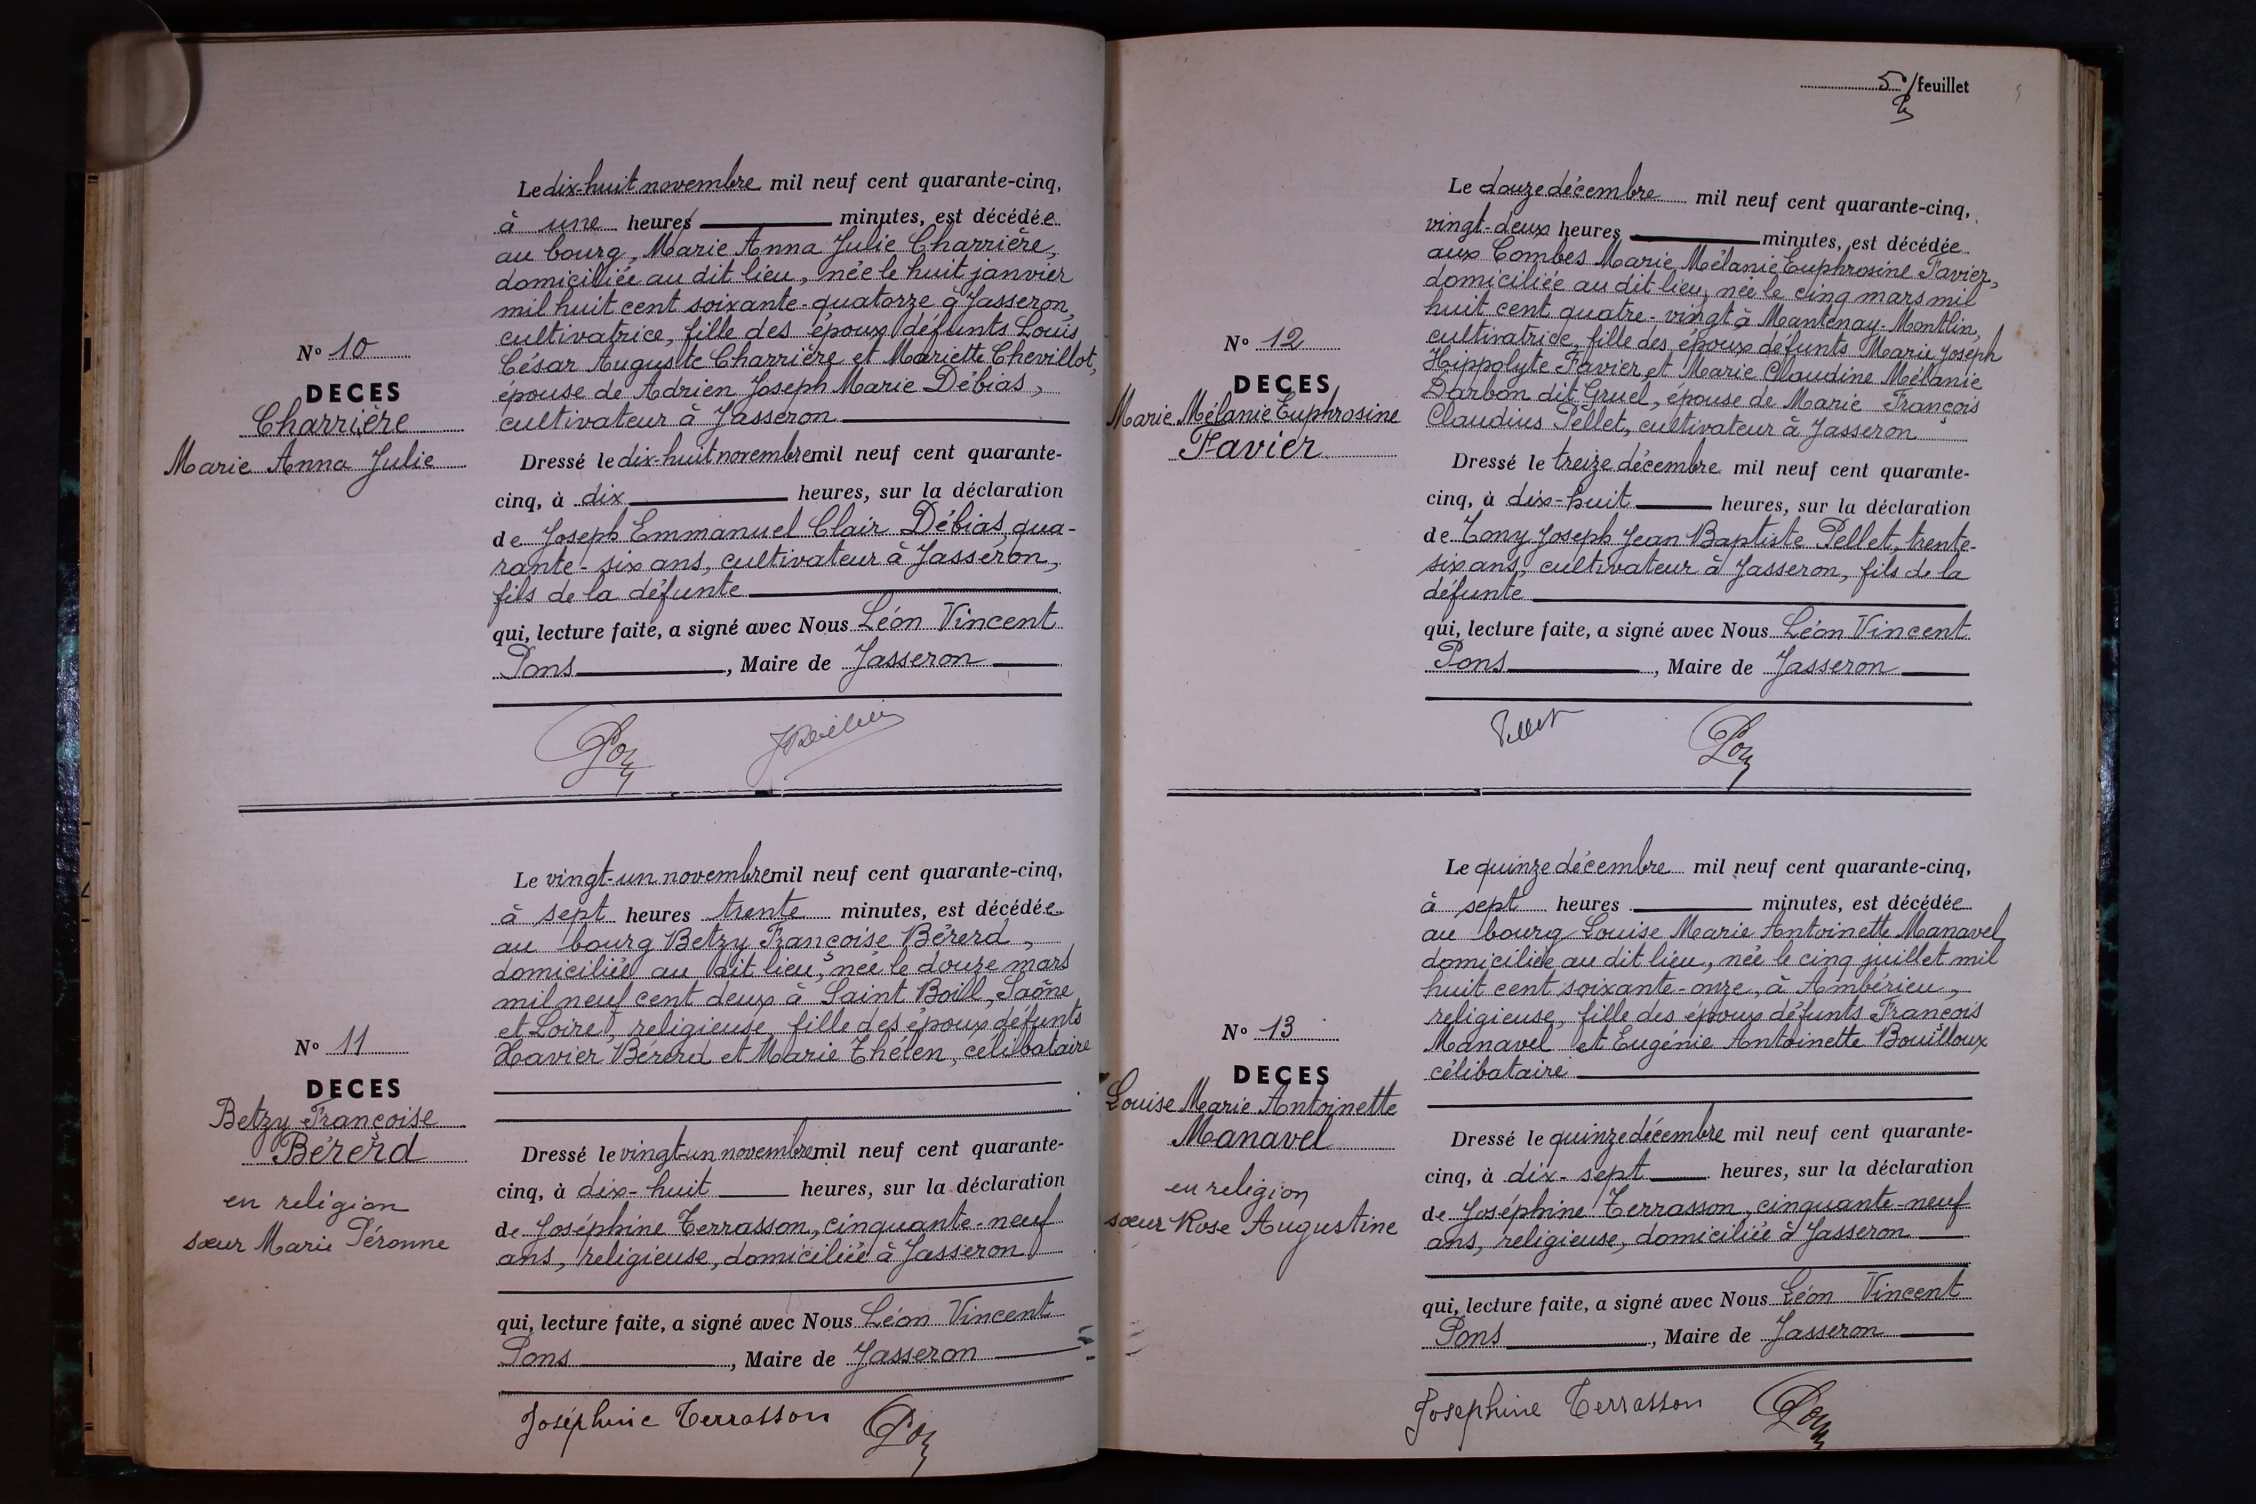 Le dix-huit novembre mil neuf cent quarante-cinq,
à une heures minutes, est décédée
au bourg, Marie Anna Julie Charrière,
domiciliée au dit lieu, née le huit janvier
mil huit cent soixante-quatorze à Jasseron,
cultivatrice, fille des époux défunts Louis
César Auguste Charrière et Mariette Chevillot,
épouse de Adrien Joseph Marie Débias,
cultivateur à Jasseron
N° 10
DECES
Charrière
Marie Anna Julie
Dressé le dix-huit novembre mil neuf cent quarante-
cinq, à dix heures, sur la déclaration
de Joseph Emmanuel Clair Débias, qua-
rante-six ans, cultivateur à Jasseron,
fils de la défunte
qui, lecture faite, a signé avec Nous Léon Vincent
Pons, Maire de Jasseron
Le vingt-un novembre mil neuf cent quarante-cinq,
à sept heures trente minutes, est décédée
au bourg Betzy Françoise Bérerd,
domiciliée au dit lieu, née le douze mars
mil neuf cent deux à Saint Boill, Saône
et Loire, religieuse, fille des époux défunts
Xavier Bérerd et Marie Thélen, célibataire
N° 11
DECES
Betzy Françoise
Bérerd
en religion
sœur Marie Péronne
Dressé le vingt-un novembre mil neuf cent quarante-
cinq, à dix-huit heures, sur la déclaration
de Joséphine Terrasson, cinquante-neuf
ans, religieuse, domiciliée à Jasseron
qui, lecture faite, a signé avec Nous Léon Vincent
Pons, Maire de Jasseron
Joséphine Terrasson
5e/feuillet
Le douze décembre mil neuf cent quarante-cinq,
vingt-deux heures minutes, est décédée
aux Combes Marie Mélanie Euphrosine Favier,
domiciliée au dit lieu, née le cinq mars mil
huit cent quatre-vingt à Mantenay-Montlin,
cultivatrice, fille des époux défunts Marie Joseph
Hippolyte Favier et Marie Claudine Mélanie
Darbon dit Gruel, épouse de Marie François
Claudius Pellet, cultivateur à Jasseron
N° 12
DECES
Marie Mélanie Euphrosine
Favier
Dressé le treize décembre mil neuf cent quarante-
cinq, à dix-huit heures, sur la déclaration
de Tony Joseph Jean Baptiste Pellet, trente-
six ans, cultivateur à Jasseron, fils de la
défunte
qui, lecture faite, a signé avec Nous Léon Vincent
Pons, Maire de Jasseron
Pellet
Le quinze décembre mil neuf cent quarante-cinq,
à sept heures minutes, est décédée
au bourg Louise Marie Antoinette Manavel
domiciliée au dit lieu, née le cinq juillet mil
huit cent soixante-onze, à Ambérieu,
religieuse, fille des époux défunts François
Manavel et Eugénie Antoinette Bouilloux
célibataire
N° 13
DECES
Louise Marie Antoinette
Manavel
en religion
sœur Rose Augustine
Dressé le quinze décembre mil neuf cent quarante-
cinq, à dix-sept heures, sur la déclaration
de Joséphine Terrasson, cinquante-neuf
ans, religieuse, domiciliée à Jasseron
qui, lecture faite, a signé avec Nous Léon Vincent
Pons, Maire de Jasseron
Josephine Terrasson